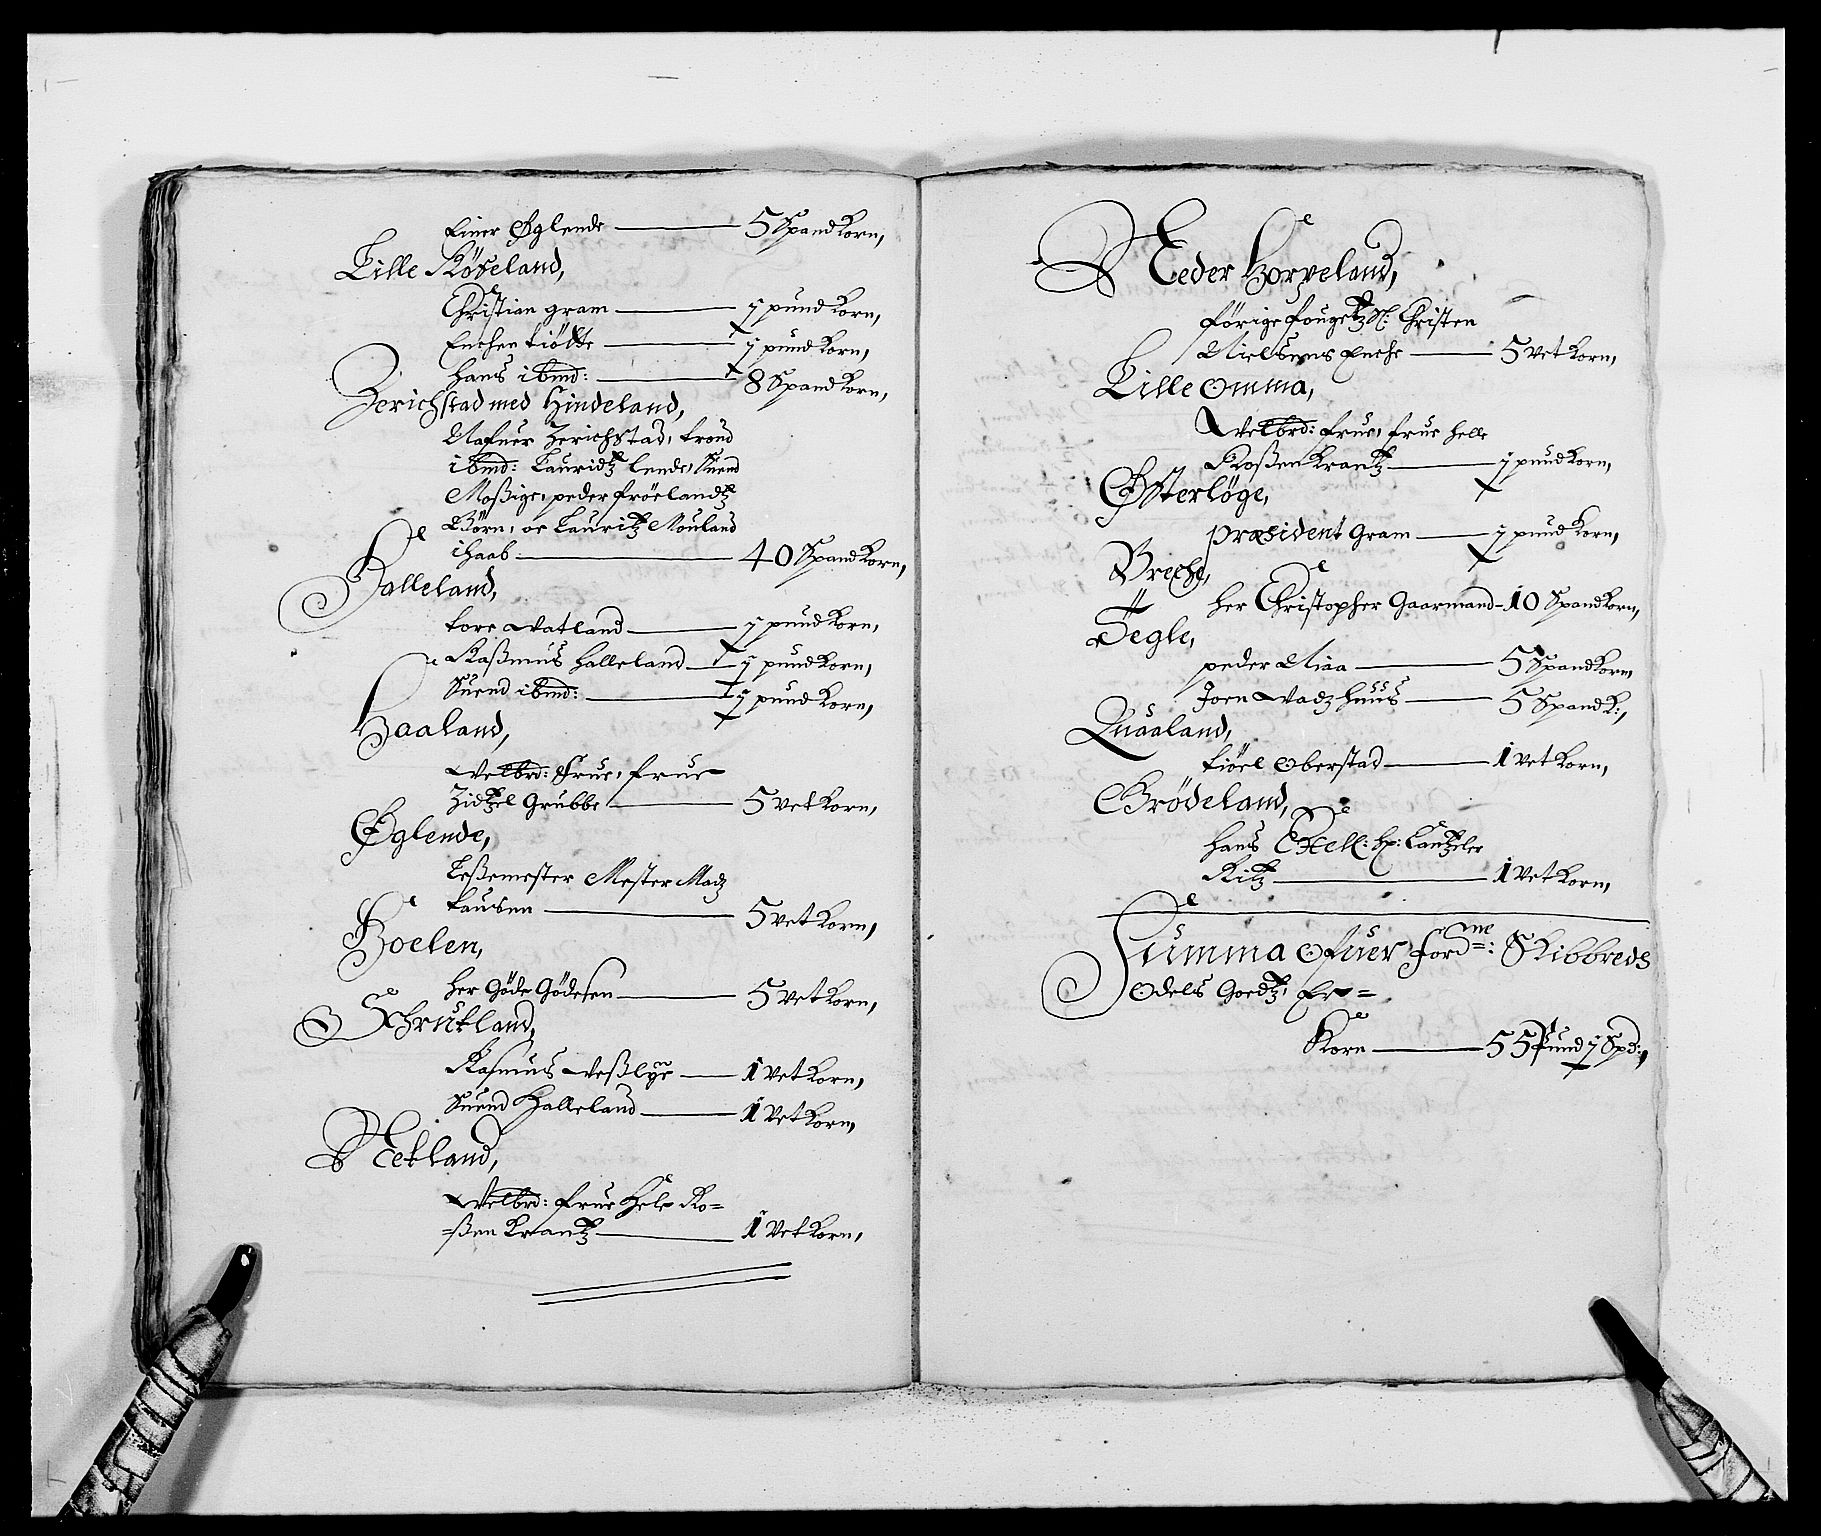 Einer Øglende — 5 Spand Korn,
Lille Röseland,
Christian gram — j pund Korn,
Encken tiötte — j pund Korn,
hans ibmd: — 8 Spand Korn,
Zerichstad med Hindeland,
Rafuer Zerichstad, trond
ibmd: Lauridtz lende, Suend
Moßige, peder fröelandtz
Börn, oc Lauritz Mouland
ihaab — 40 Spand Korn,
Halleland,
tore Watland — j pund Korn,
Raßmus halleland — j pund Korn,
Suend ibmd: — j pund Korn,
Haaland,
Welbrd: Frue, frue
Zidtzel Grubbe — 5 Vet Korn,
Øglende,
Leßemester Mester Madz
tausen — 5 Vet Korn,
Hoelen,
her Göde Gödesen — 5 Vet Korn,
Schrutland,
Rasmus Weßlye — 1 Vet Korn,
Suend Halleland — 1 Vet Korn,
Netland,
Welbrd: frue Hele Ro=
=ßen Krantz — 1 Vet Korn,
Neder Horveland,
förige fougetz Sl: Christen
Nielsens Encke — 5 Vet Korn,
Lille Omma,
Welbrd: frue, frue helle
Roßen Krantz — j pund Korn,
Østerlöge,
præsident Gram — j pund Korn,
Breche,
her Christopher Gaarmand — 10 Spand Korn,
Tegle,
peder Miaa — 5 Spand Korn,
Joen Wadzhuus — 5 Spand K:,
Quaaland,
tiöel Oberstad — 1 Vet Korn,
Brödeland,
hans Exell: hr: Cantzeler
Ritz — 1 Vet Korn,
Summa Ofuer ford:ne Skibbreds
Odels Goedtz, Er =
Korn — 55 Pund j Spd:,